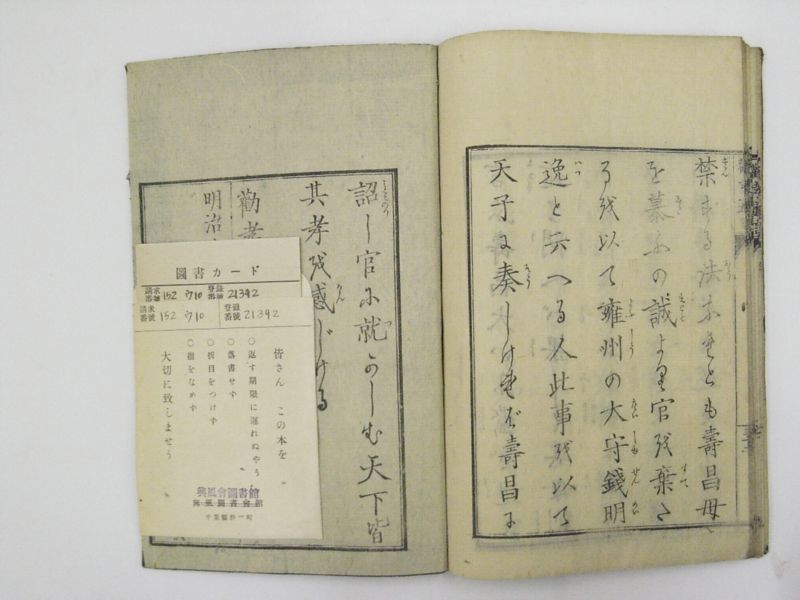 禁ずる法なれども壽昌母
を慕ふの誠より官を棄た
るを以て雍州の大守錢明
逸と云へる人此事を以て
天子に奏しければ壽昌に
詔し官に就かしむ天下皆
其孝を感じける
勸孝
明治
圖書カード
請求番號 152 ウ10 登録番號 21392
請求番號 152 ウ10 登録番號 21392
皆さん この本を
○返す期限に遅れぬやう
○落書せず
○折目をつけず
○指をなめず
大切に致しませう
興風會圖書館
興風圖書會館